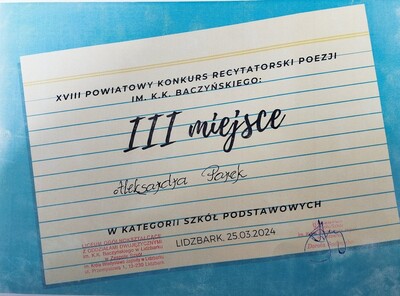 XVIII POWIATOWY KONKURS RECYTATORSKI POEZJI
IM. K.K. BACZYŃSKIEGO:
III miejsce
Aleksandra Parek
W KATEGORII SZKÓŁ PODSTAWOWYCH
LIDZBARK, 25.03.2024
LICEUM OGÓLNOKSZTAŁCĄCE
Z ODDZIAŁAMI DWUJĘZYCZNYMI